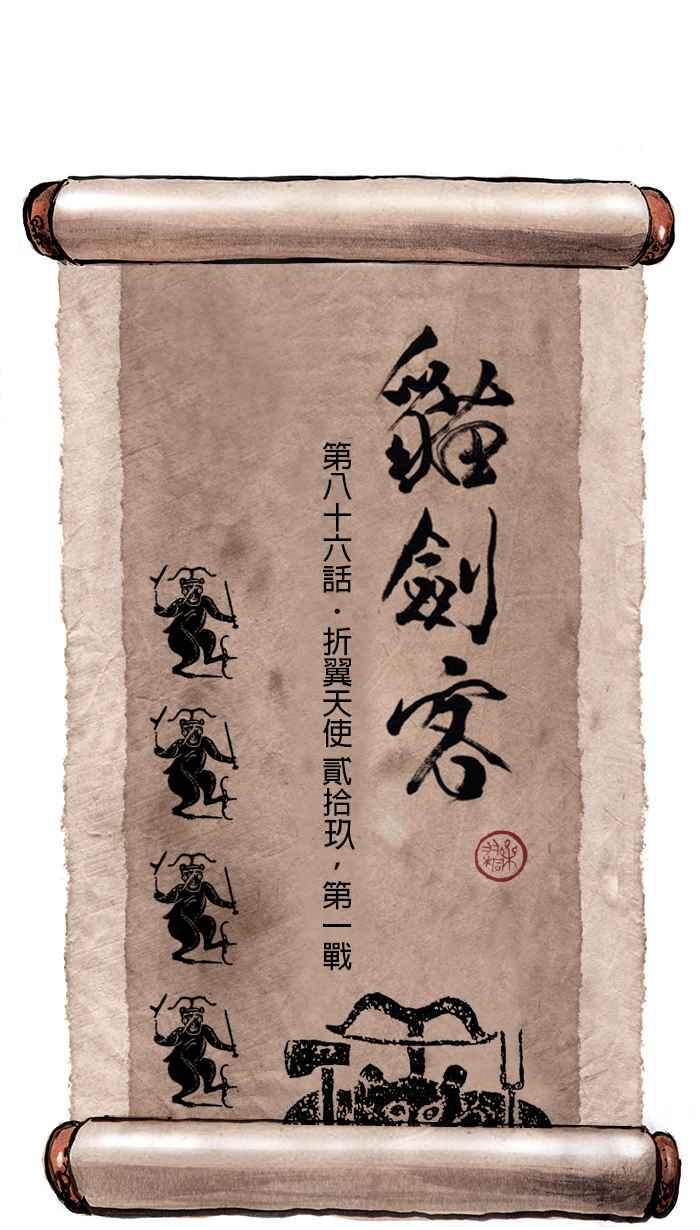 貓劍客
第八十六話・折翼天使 貳拾玖，第一戰